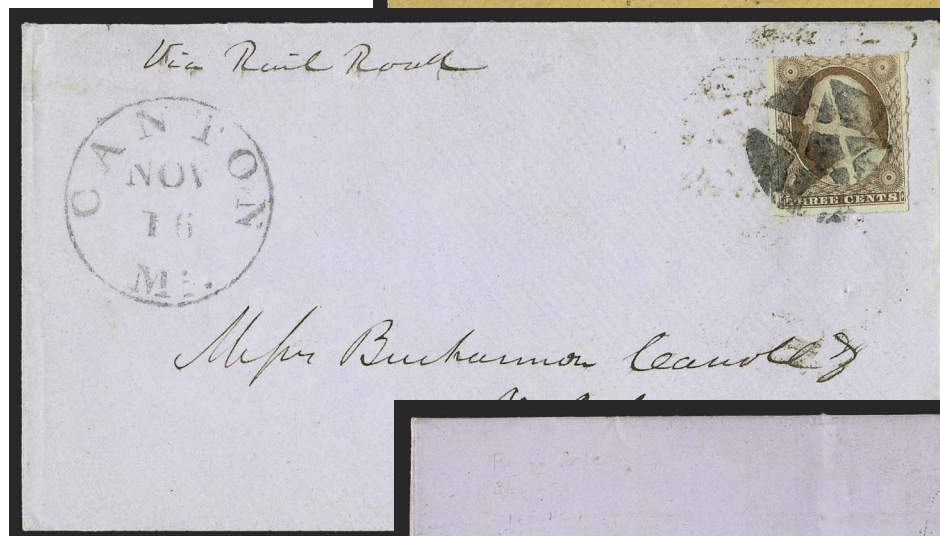 Via Rail Road
CANTON
NOV
16
Mi.
THREE CENTS
Messrs Buchannon Carroll &